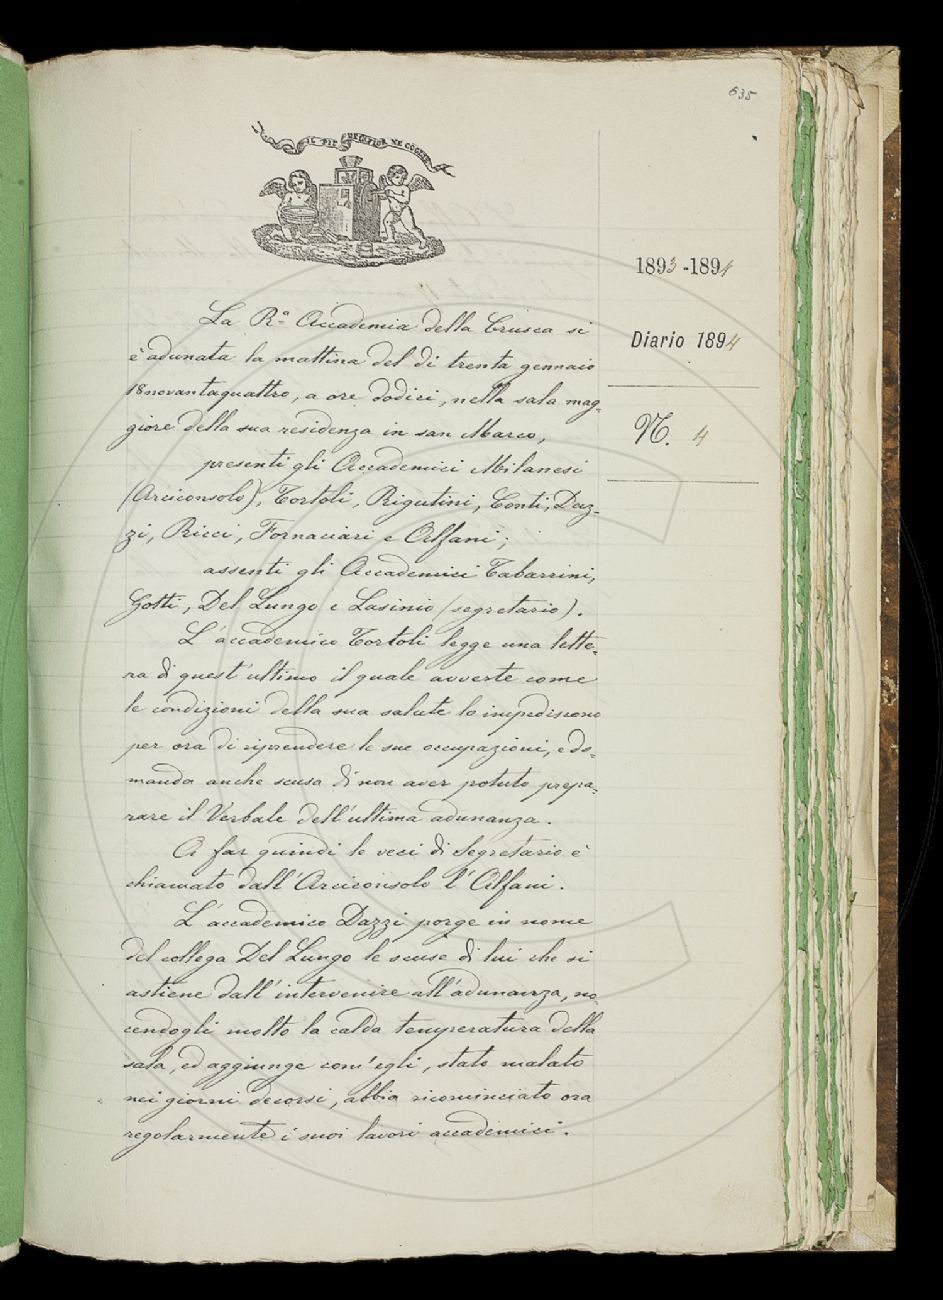 635
IL PIÙ BEL FIOR NE COGLIE
1893-1894
Diario 1894
N. 4
La R.ª Accademia della Crusca si
è adunata la mattina del dì trenta gennaio
18novantaquattro, a ore dodici, nella sala mag=
giore della sua residenza in san Marco,
presenti gli Accademici Milanesi
(Arciconsolo), Tortoli, Rigutini, Conti, Daz=
zi, Ricci, Fornaciari e Alfani;
assenti gli Accademici Tabarrini,
Gotti, Del Lungo e Lasinio (segretario).
L'accademico Tortoli legge una lette=
ra di quest'ultimo il quale avverte come
le condizioni della sua salute lo impediscono
per ora di riprendere le sue occupazioni, e do=
manda anche scusa di non aver potuto prepa=
rare il Verbale dell'ultima adunanza.
A far quindi le veci di Segretario è
chiamato dall'Arciconsolo l'Alfani.
L'accademico Dazzi porge in nome
del collega Del Lungo le scuse di lui che si
astiene dall'intervenire all'adunanza, no
cendogli molto la calda temperatura della
sala, ed aggiunge com'egli, stato malato
nei giorni decorsi, abbia ricominciato ora
regolarmente i suoi lavori accademici.